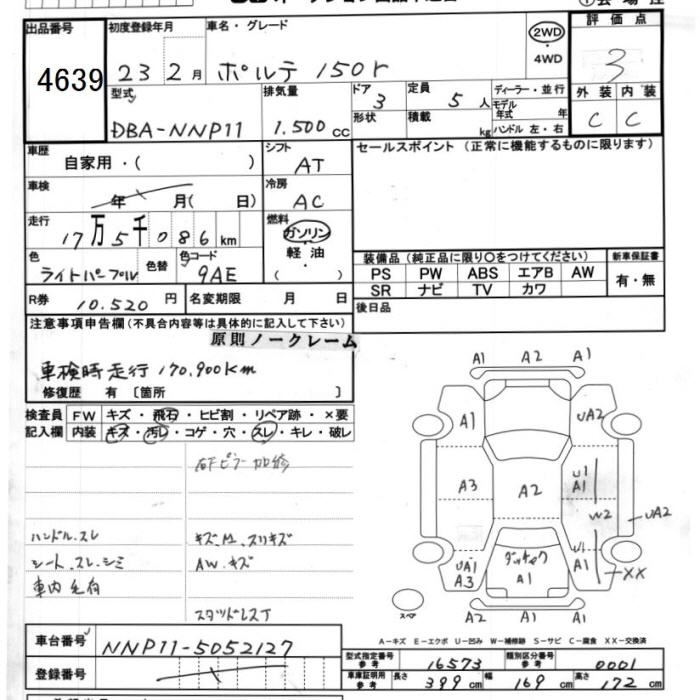 出品番号
4639
初度登録年月
23 2月
車名・グレード
ポルテ 150r
2WD
4WD
評価点
3
型式
DBA-NNP11
排気量
1.500 cc
ドア
3
形状
定員
5 人
積載
kg
ディーラー・並行
モデル年式 年
ハンドル 左・右
外装 内装
C C
車歴
自家用・( )
シフト
AT
セールスポイント (正常に機能するものに限ります)
車検
年 月( 日)
冷房
AC
走行
17万5千086km
燃料
ガソリン
軽油
( )
色
ライトパープル
色替
色コード
9AE
装備品 (純正品に限り〇をつけてください)
新車保証書
PS PW ABS エアB AW
有・無
SR ナビ TV カワ
R券 10.520 円
名変期限 月 日
後日品
注意事項申告欄(不具合内容等は具体的に記入して下さい)
原則ノークレーム
車検時走行 170,900km
修復歴 有 〔箇所 〕
検査員
記入欄
FW キズ・飛石・ヒビ割・リペア跡・×要
内装 キズ・汚レ・コゲ・穴・スレ・キレ・破レ
右Fピラー加修
ハンドル.スレ
キズ.凹.スリキズ
シート.スレ.シミ
AW.キズ
車内毛有
スタッドレスT
A1 A2 A1
A1 UA2
A3 A2 U1 A1
W2 UA2
UA1 A3
ダッチャク A1
U1 A1
XX
A2 A1 A1
スペア
A-キズ E-エクボ U-凹み W-補修跡 S-サビ C-腐食 XX-交換済
車台番号 NNP11-5052127
登録番号
型式指定番号 参考 16573
類別区分番号 参考 0001
車庫証明用 参考 長さ 399 cm 幅 169 cm 高さ 172 cm